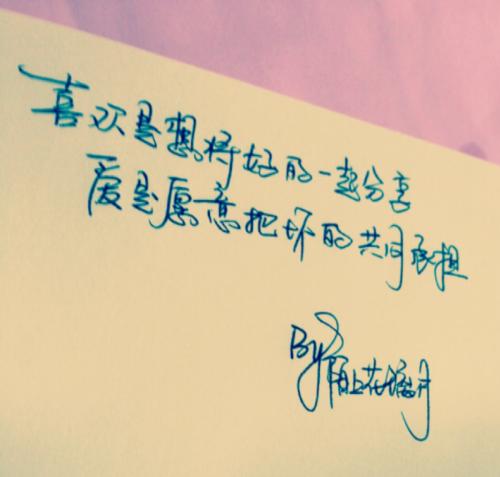 喜欢是想将好的一起分享
爱是愿意把坏的共同承担
By 陌上花